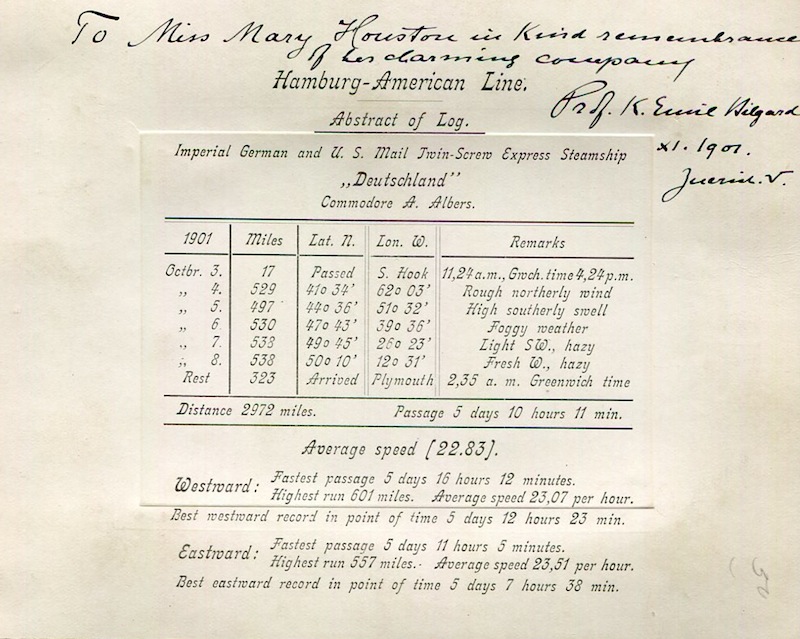 To Miss Mary Houston in Kind remembrance
of her charming company
Prof. K. Emil Hilgard
XI. 1901.
Hamburg-American Line.
Abstract of Log.
Imperial German and U. S. Mail Twin-Screw Express Steamship
„Deutschland”
Commodore A. Albers.
1901 Miles Lat. N. Lon. W. Remarks
Octbr. 3. 17 Passed S. Hook 11,24 a.m., Gwch. time 4,24 p.m.
„ 4. 529 41o 34' 62o 03' Rough northerly wind
„ 5. 497 44o 36' 51o 32' High southerly swell
„ 6. 530 47o 43' 39o 36' Foggy weather
„ 7. 538 49o 45' 26o 23' Light SW., hazy
„ 8. 538 50o 10' 12o 31' Fresh W., hazy
Rest 323 Arrived Plymouth 2,35 a. m. Greenwich time
Distance 2972 miles. Passage 5 days 10 hours 11 min.
Average speed [22.83].
Westward: Fastest passage 5 days 16 hours 12 minutes.
Highest run 601 miles. Average speed 23,07 per hour.
Best westward record in point of time 5 days 12 hours 23 min.
Eastward: Fastest passage 5 days 11 hours 5 minutes.
Highest run 557 miles. Average speed 23,51 per hour.
Best eastward record in point of time 5 days 7 hours 38 min.